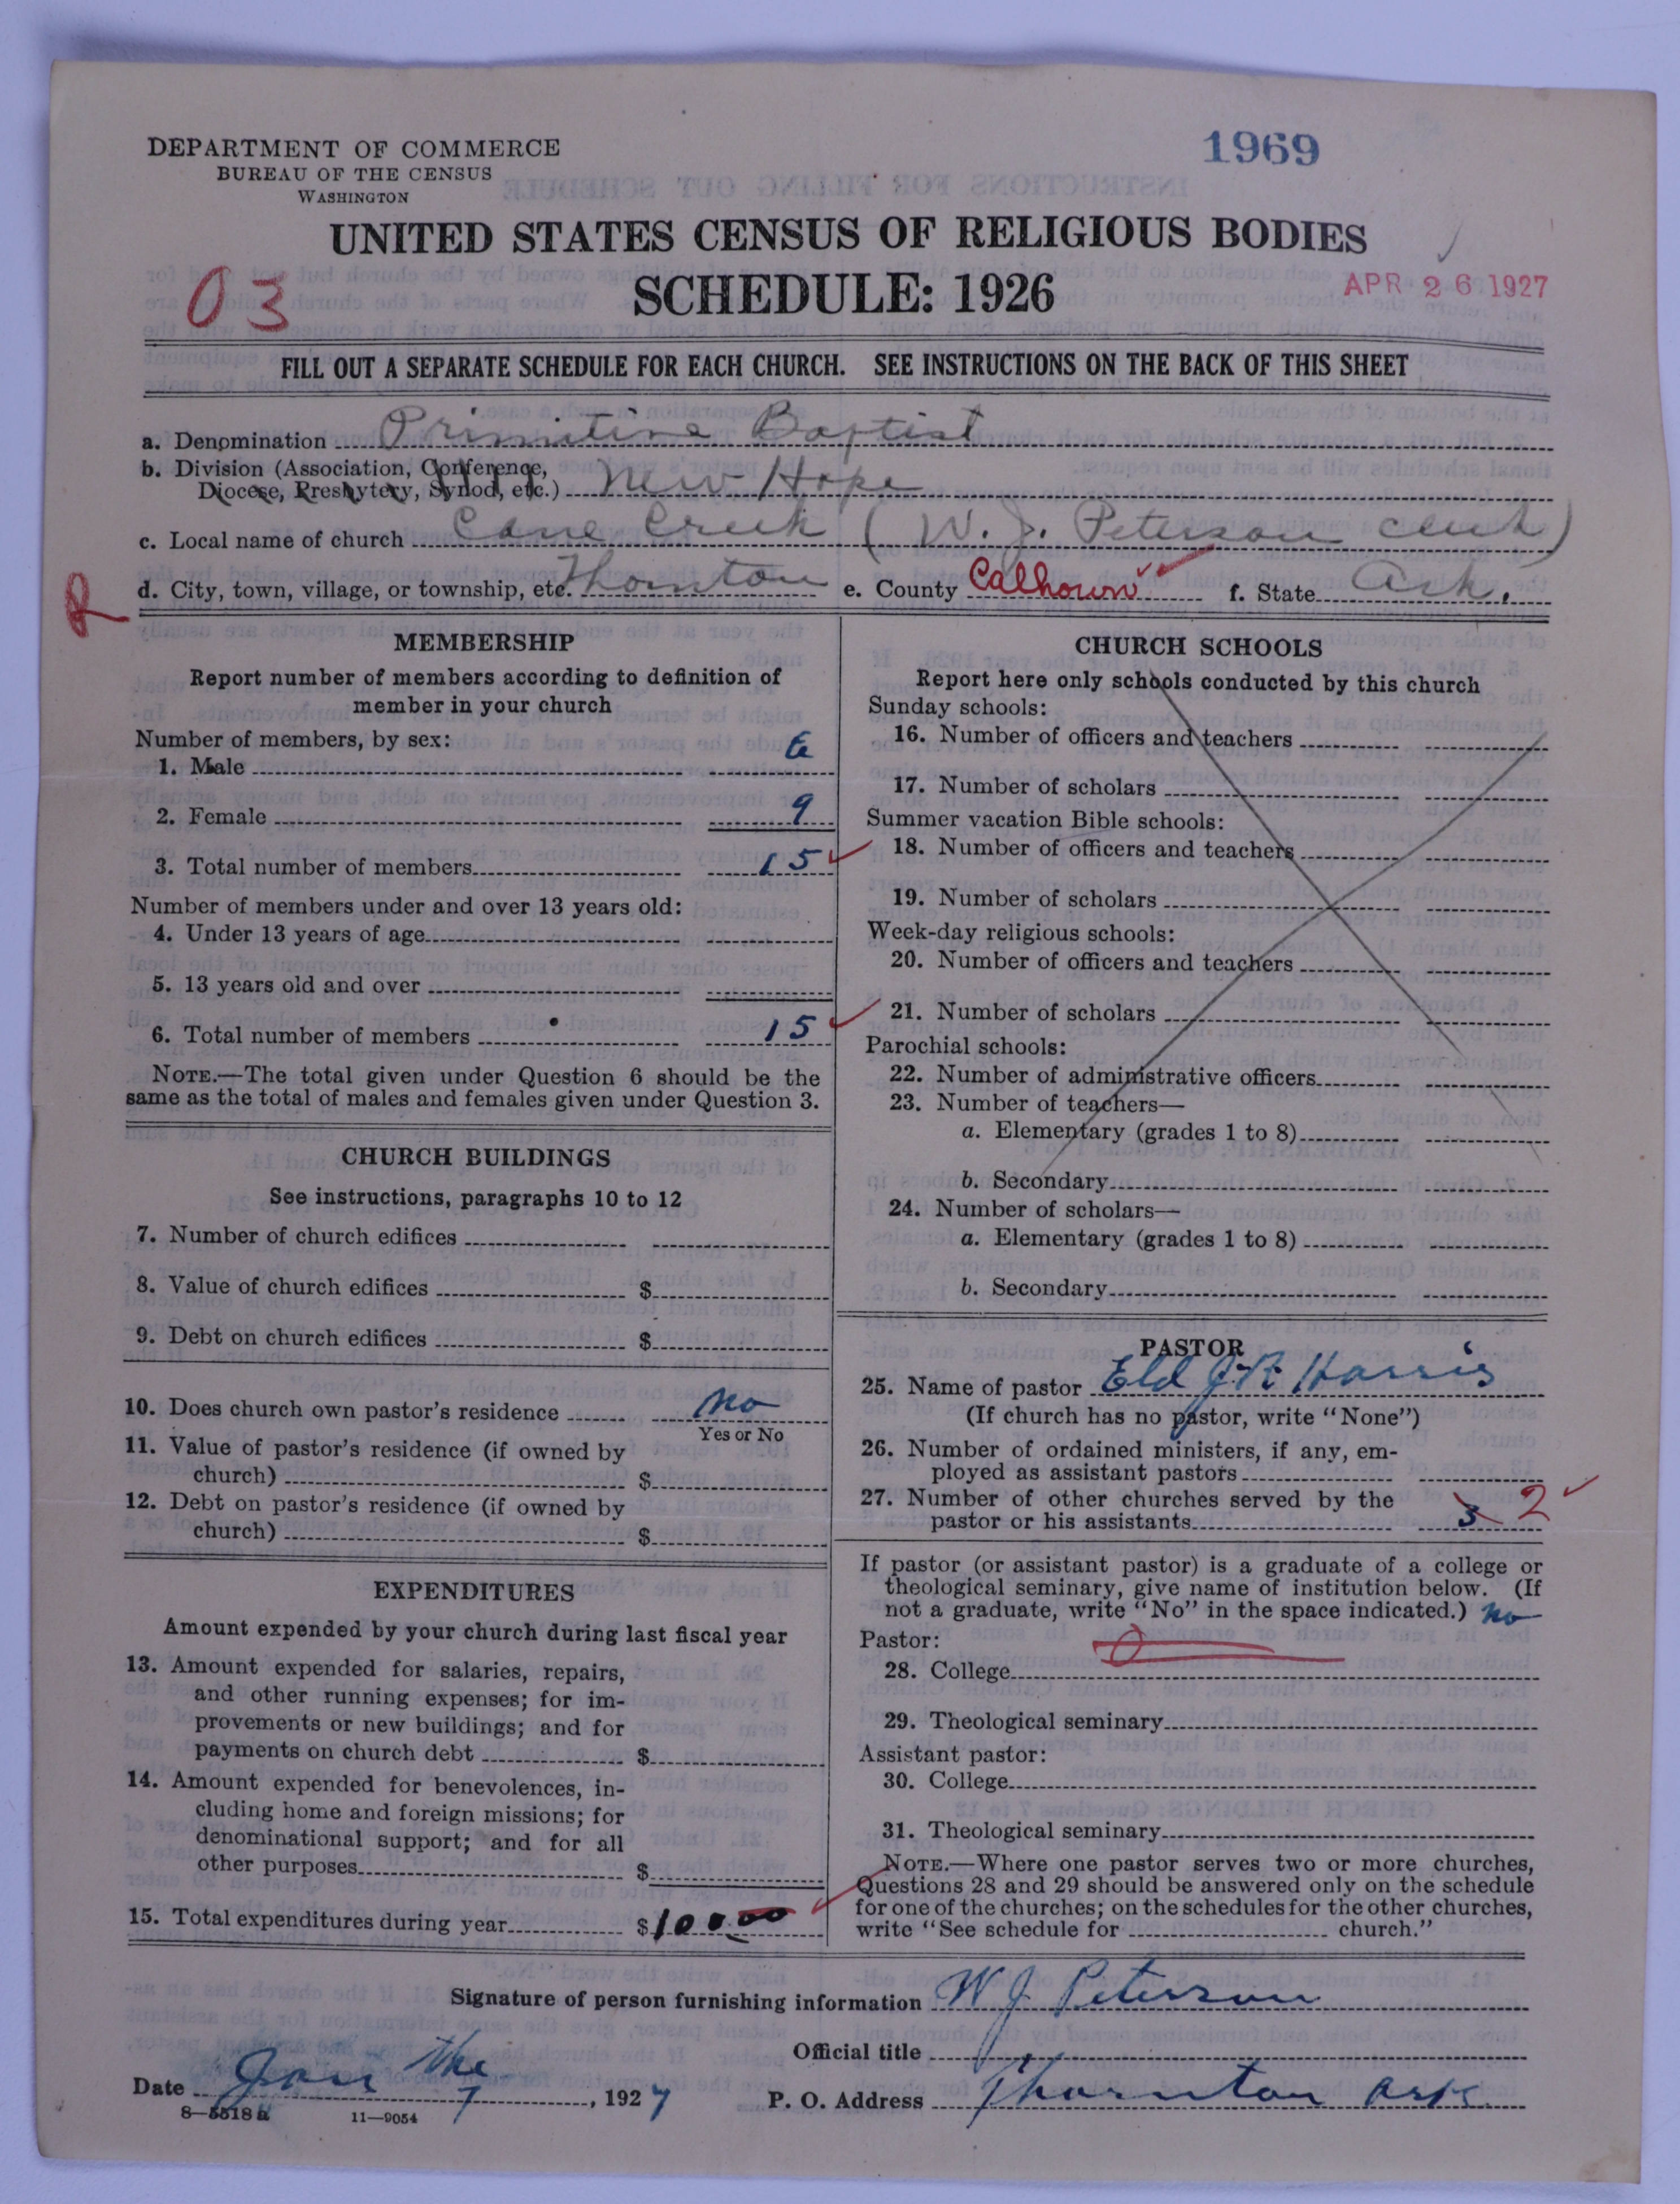 DEPARTMENT OF COMMERCE
BUREAU OF THE CENSUS
WASHINGTON
1969
UNITED STATES CENSUS OF RELIGIOUS BODIES
SCHEDULE: 1926
03
APR 26 1927
FILL OUT A SEPARATE SCHEDULE FOR EACH CHURCH. SEE INSTRUCTIONS ON THE BACK OF THIS SHEET
a. Denomination Primitive Baptist
b. Division (Association, Conference,
Diocese, Presbytery, Synod, etc.) New Hope
c. Local name of church Cane Creek (W. J. Peterson clerk)
d. City, town, village, or township, etc. Thornton e. County Calhoun f. State Ark.
R
MEMBERSHIP
Report number of members according to definition of
member in your church
Number of members, by sex:
1. Male 6
2. Female 9
3. Total number of members 15
Number of members under and over 13 years old:
4. Under 13 years of age
5. 13 years old and over
6. Total number of members 15
NOTE.—The total given under Question 6 should be the
same as the total of males and females given under Question 3.
CHURCH BUILDINGS
See instructions, paragraphs 10 to 12
7. Number of church edifices
8. Value of church edifices $
9. Debt on church edifices $
10. Does church own pastor's residence no
Yes or No
11. Value of pastor's residence (if owned by
church) $
12. Debt on pastor's residence (if owned by
church) $
EXPENDITURES
Amount expended by your church during last fiscal year
13. Amount expended for salaries, repairs,
and other running expenses; for im-
provements or new buildings; and for
payments on church debt $
14. Amount expended for benevolences, in-
cluding home and foreign missions; for
denominational support; and for all
other purposes $
15. Total expenditures during year $
CHURCH SCHOOLS
Report here only schools conducted by this church
Sunday schools:
16. Number of officers and teachers
17. Number of scholars
Summer vacation Bible schools:
18. Number of officers and teachers
19. Number of scholars
Week-day religious schools:
20. Number of officers and teachers
21. Number of scholars
Parochial schools:
22. Number of administrative officers
23. Number of teachers—
a. Elementary (grades 1 to 8)
b. Secondary
24. Number of scholars—
a. Elementary (grades 1 to 8)
b. Secondary
PASTOR
25. Name of pastor Eld J R Harris
(If church has no pastor, write "None")
26. Number of ordained ministers, if any, em-
ployed as assistant pastors
27. Number of other churches served by the
pastor or his assistants 3 2
If pastor (or assistant pastor) is a graduate of a college or
theological seminary, give name of institution below. (If
not a graduate, write "No" in the space indicated.) no
Pastor:
28. College
29. Theological seminary
Assistant pastor:
30. College
31. Theological seminary
NOTE.—Where one pastor serves two or more churches,
Questions 28 and 29 should be answered only on the schedule
for one of the churches; on the schedules for the other churches,
write "See schedule for church."
Signature of person furnishing information W J Peterson
Official title
Date Jan the 7, 1927 P. O. Address Thornton Ark
8—5518 a 11—9054